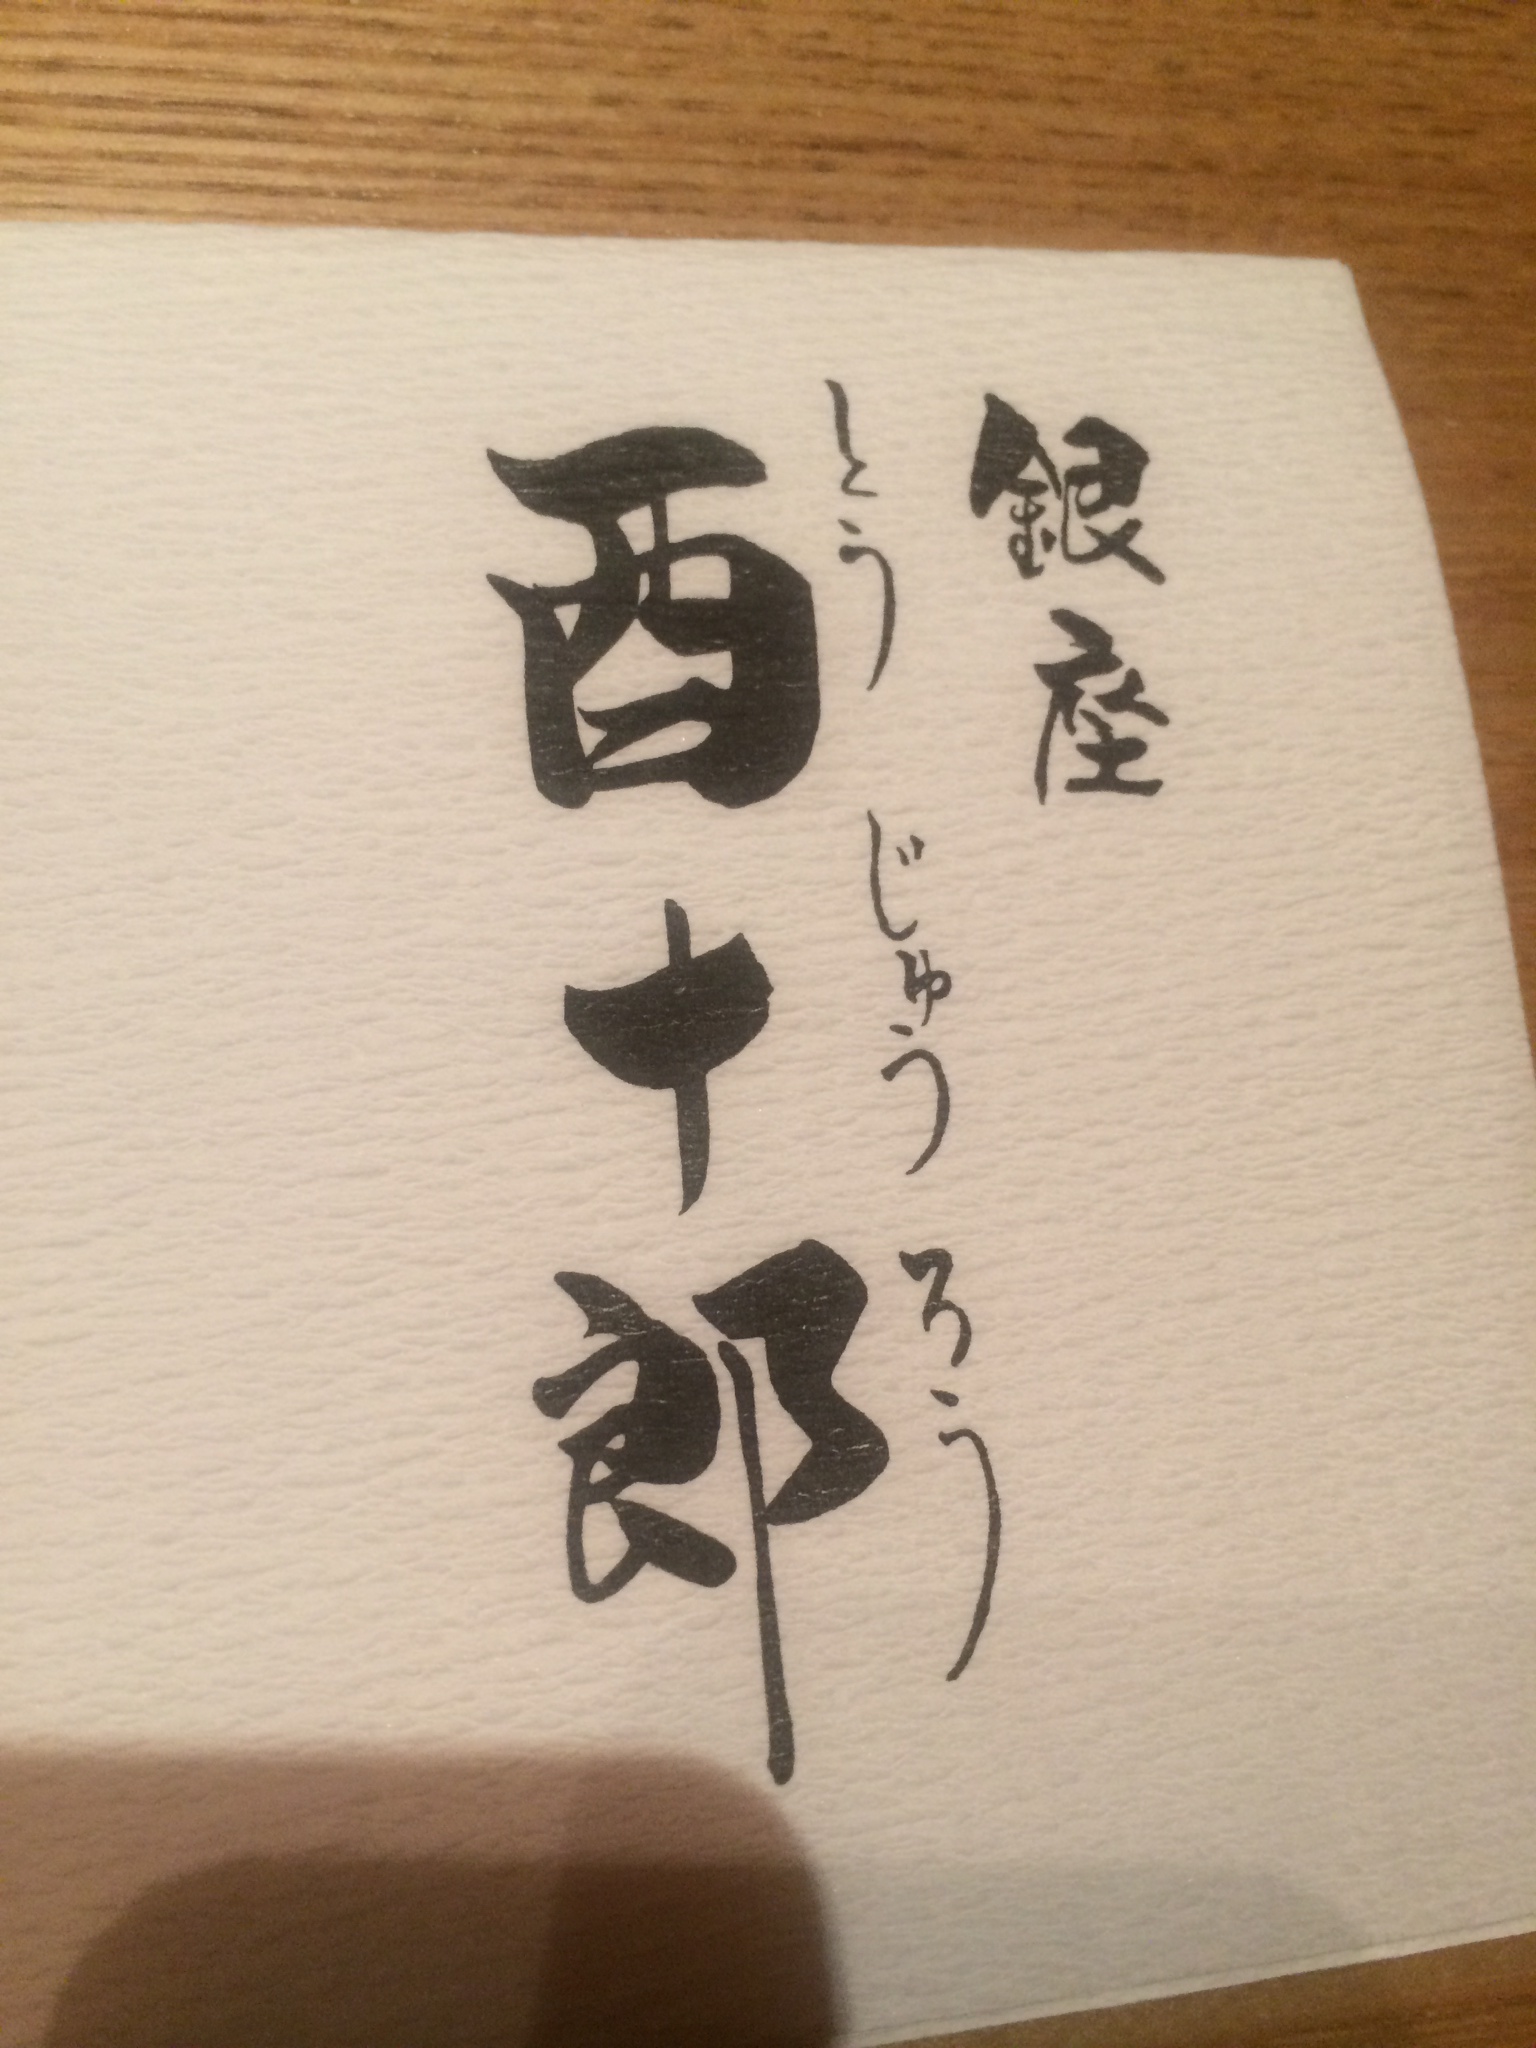 銀座
とうじゅうろう
酉十郎